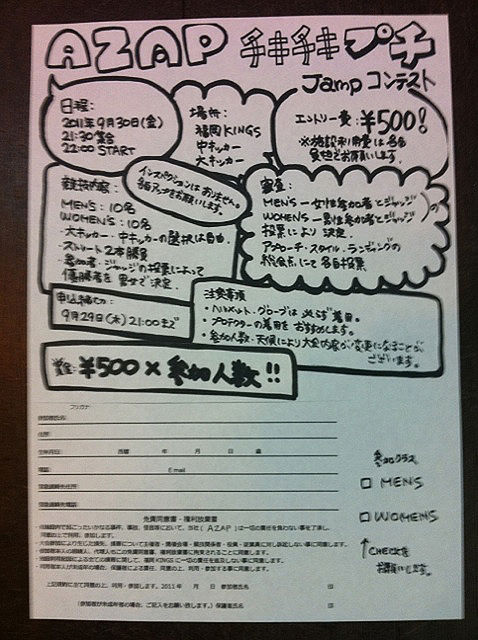 AZAP チキチキ プチ
Jamp コンテスト
日程:
2011年9月30日(金)
21:30 集合
22:00 START
場所:
福岡KINGS
中キッカー
大キッカー
エントリー費:¥500!
※施設利用費は各自
負担でお願いします。
インスペクションはありません。
各自アップをお願いします。
競技内容:
MEN'S:10名
WOMEN'S:10名
・大キッカー・中キッカーの選択は自由。
・ストレート2本勝負
・参加者・ジャッジの投票によって
優勝者を男女で決定。
審査:
MEN'S ー女性参加者とジャッジ
WOMEN'S ー男性参加者とジャッジ
)の
投票により決定。
アプローチ・スタイル・ランディングの
総合点にて各自投票
申込締切:
9月29日(木)21:00まで
注意事項
・ヘルメット・グローブは必ず着用。
・プロテクターの着用をおすすめします。
・参加人数・天候により大会内容が変更になることが
ございます。
賞金:¥500×参加人数!!
フリガナ
参加者氏名:
住所:
生年月日: 西暦 年 月 日 歳
電話: E mail
緊急連絡先住所:
緊急連絡先電話:
免責同意書・権利放棄書
参加クラス
□ MEN'S
□ WOMEN'S
↑CHECKを
お願いします。
上記規約に全て同意の上、利用・参加します。2011年 月 日 参加者氏名 印
(参加者が未成年者の場合、ご記入をお願い致します。)保護者氏名 印